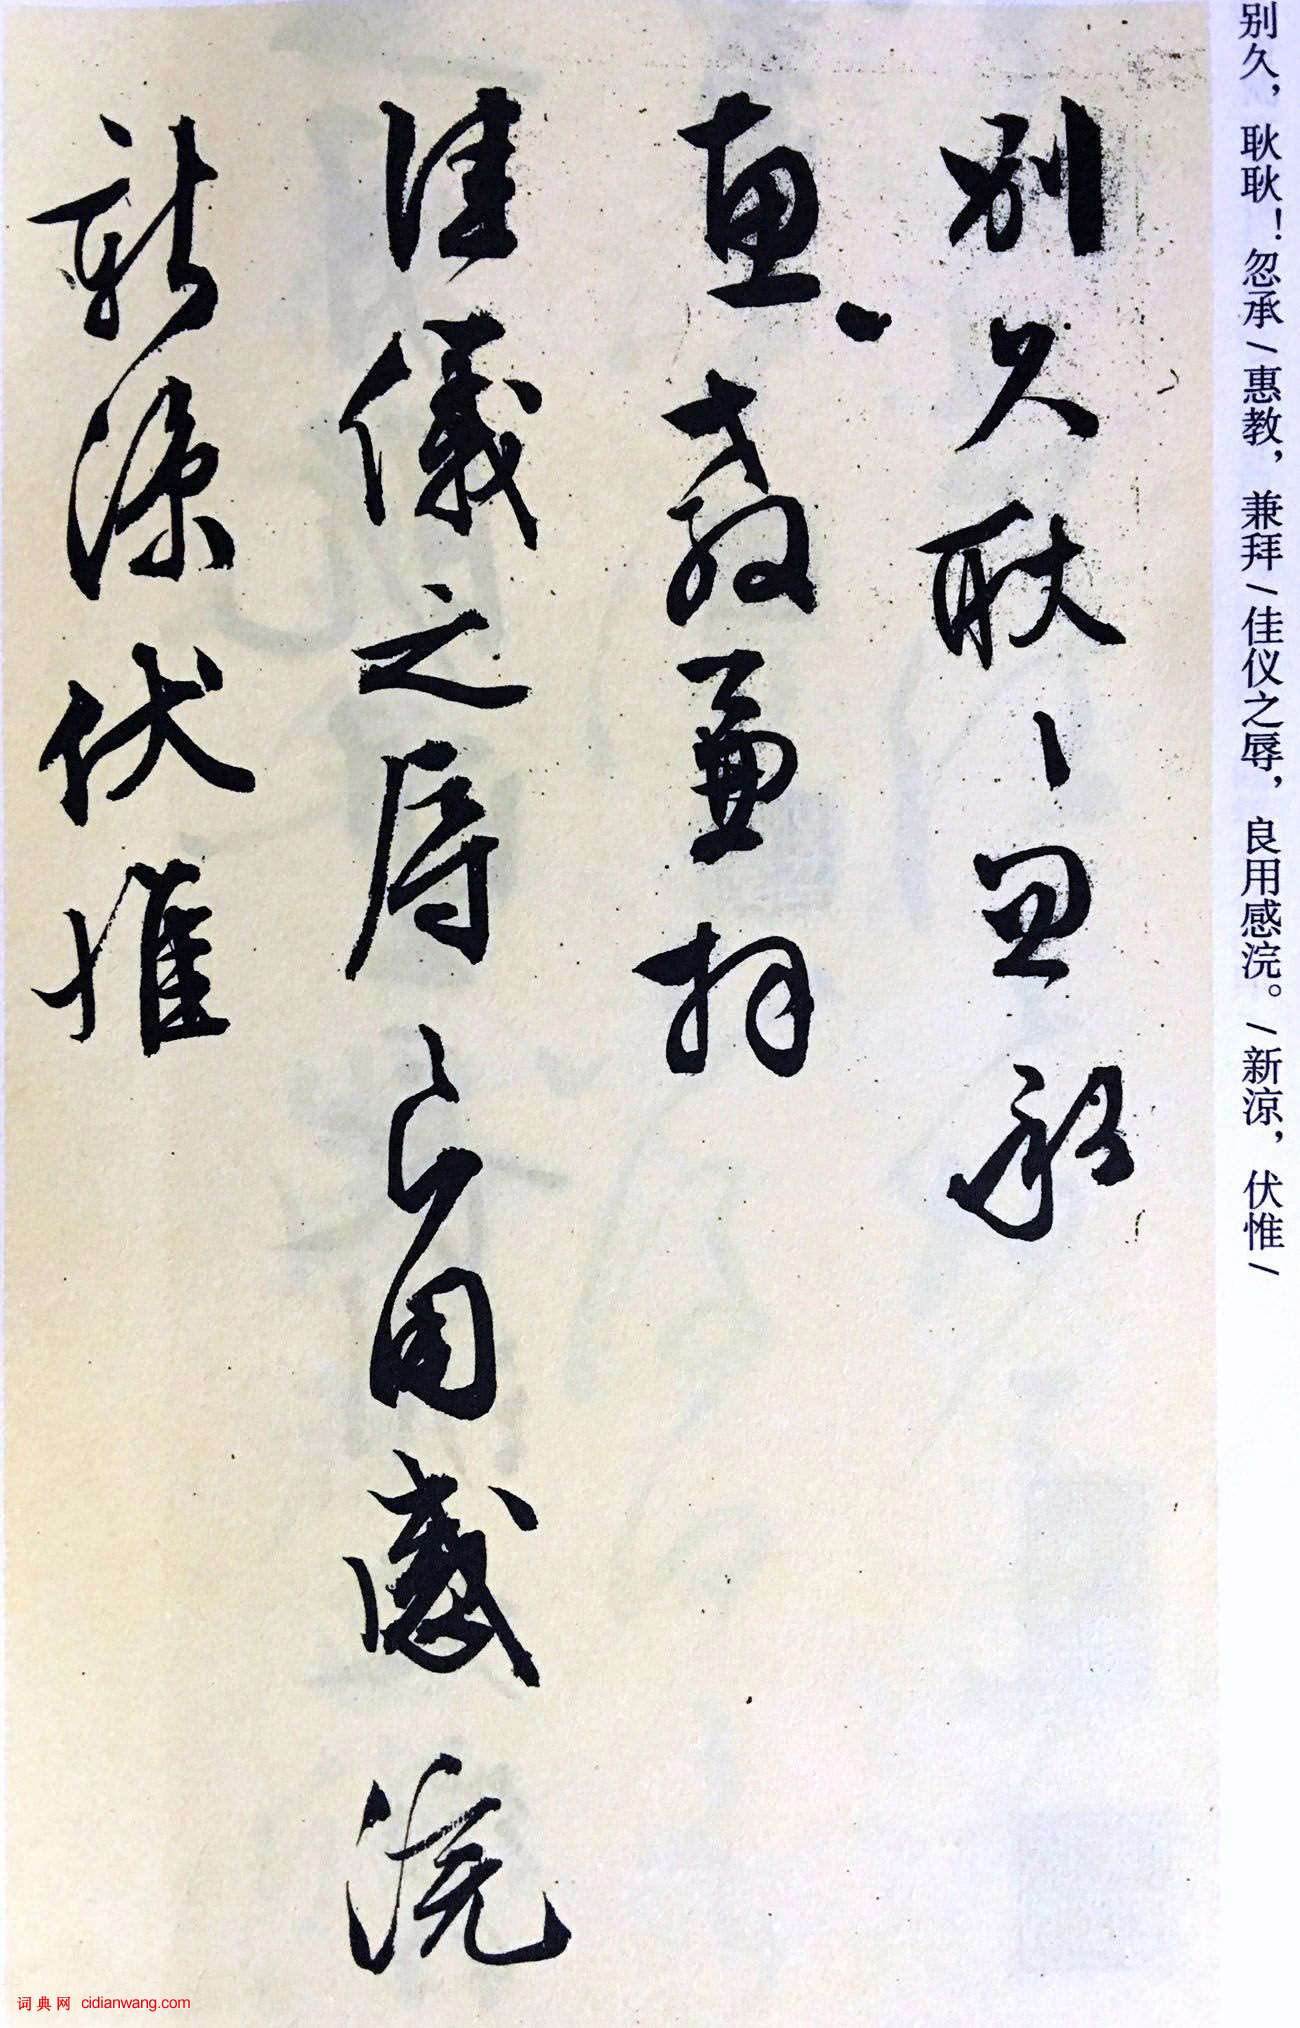 别久，耿耿！忽承/惠教，兼拜/佳仪之辱，良用感浣。/新凉，伏惟/
别久耿〻忽承
惠教兼拜
佳儀之辱良用感浣
新涼伏惟
词典网 cidianwang.com